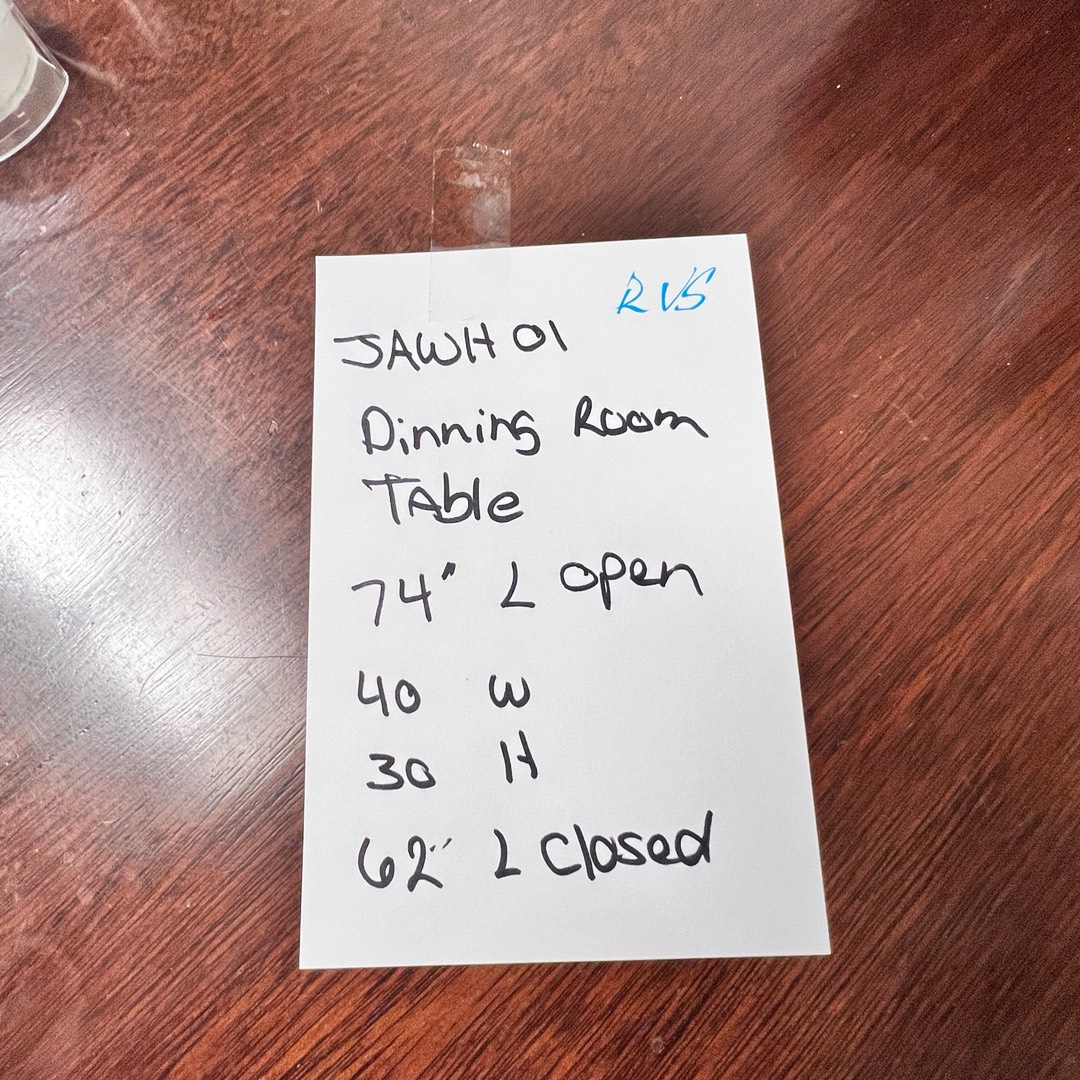 RVS
JAWH 01
Dinning Room
TAble
74" L open
40 W
30 H
62" L Closed